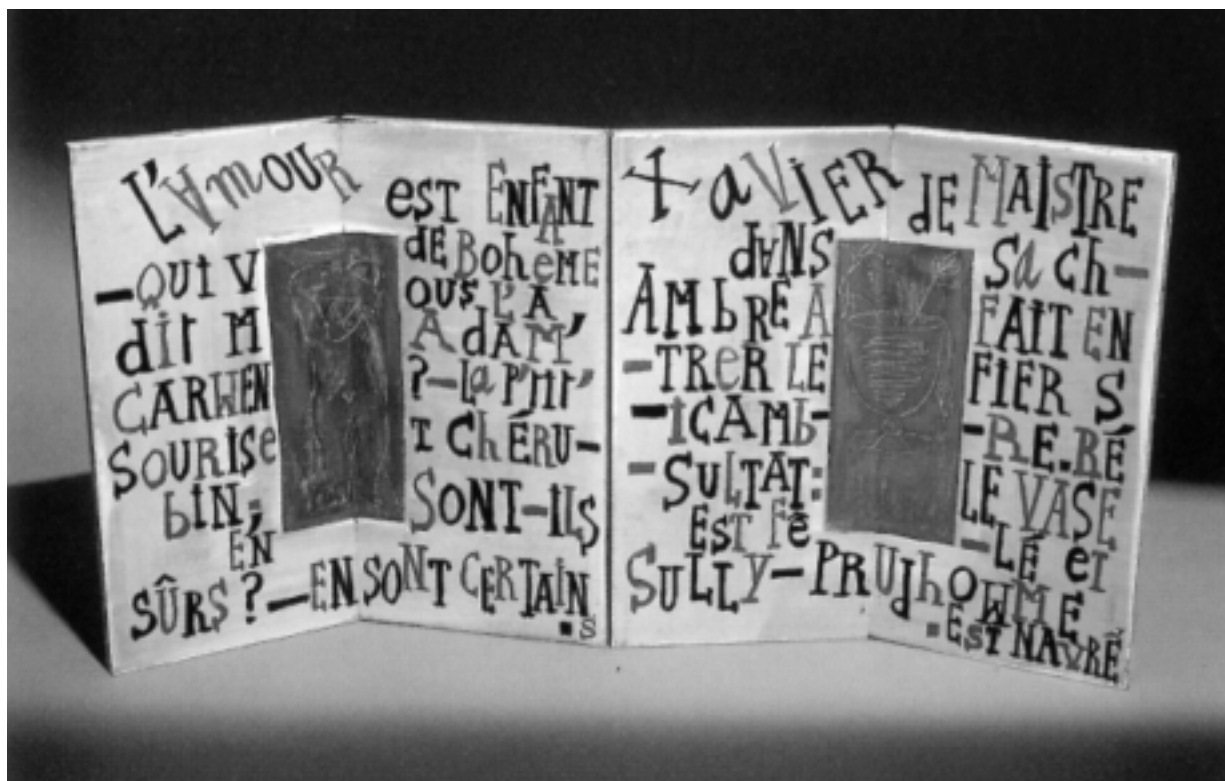 L'AMOUR EST ENFANT
DE BOHEME
–QUI V OUS L'A
DIT M ADAM'
CARMEN ?–LA P'TIT'
SOURISE T CHÉRU–
BIN: SONT–ILS
EN
SÛRS ?–EN SONT CERTAIN
.S
XAVIER DE MAISTRE
DANS SA CH–
AMBRE A FAIT EN
–TRER LE FIER S
–ICAMB– –RE.RÉ
–SULTAT: LE VASE
EST FÊ –LÉ ET
SULLY–PRUDHOMME
.EST NAVRÉ